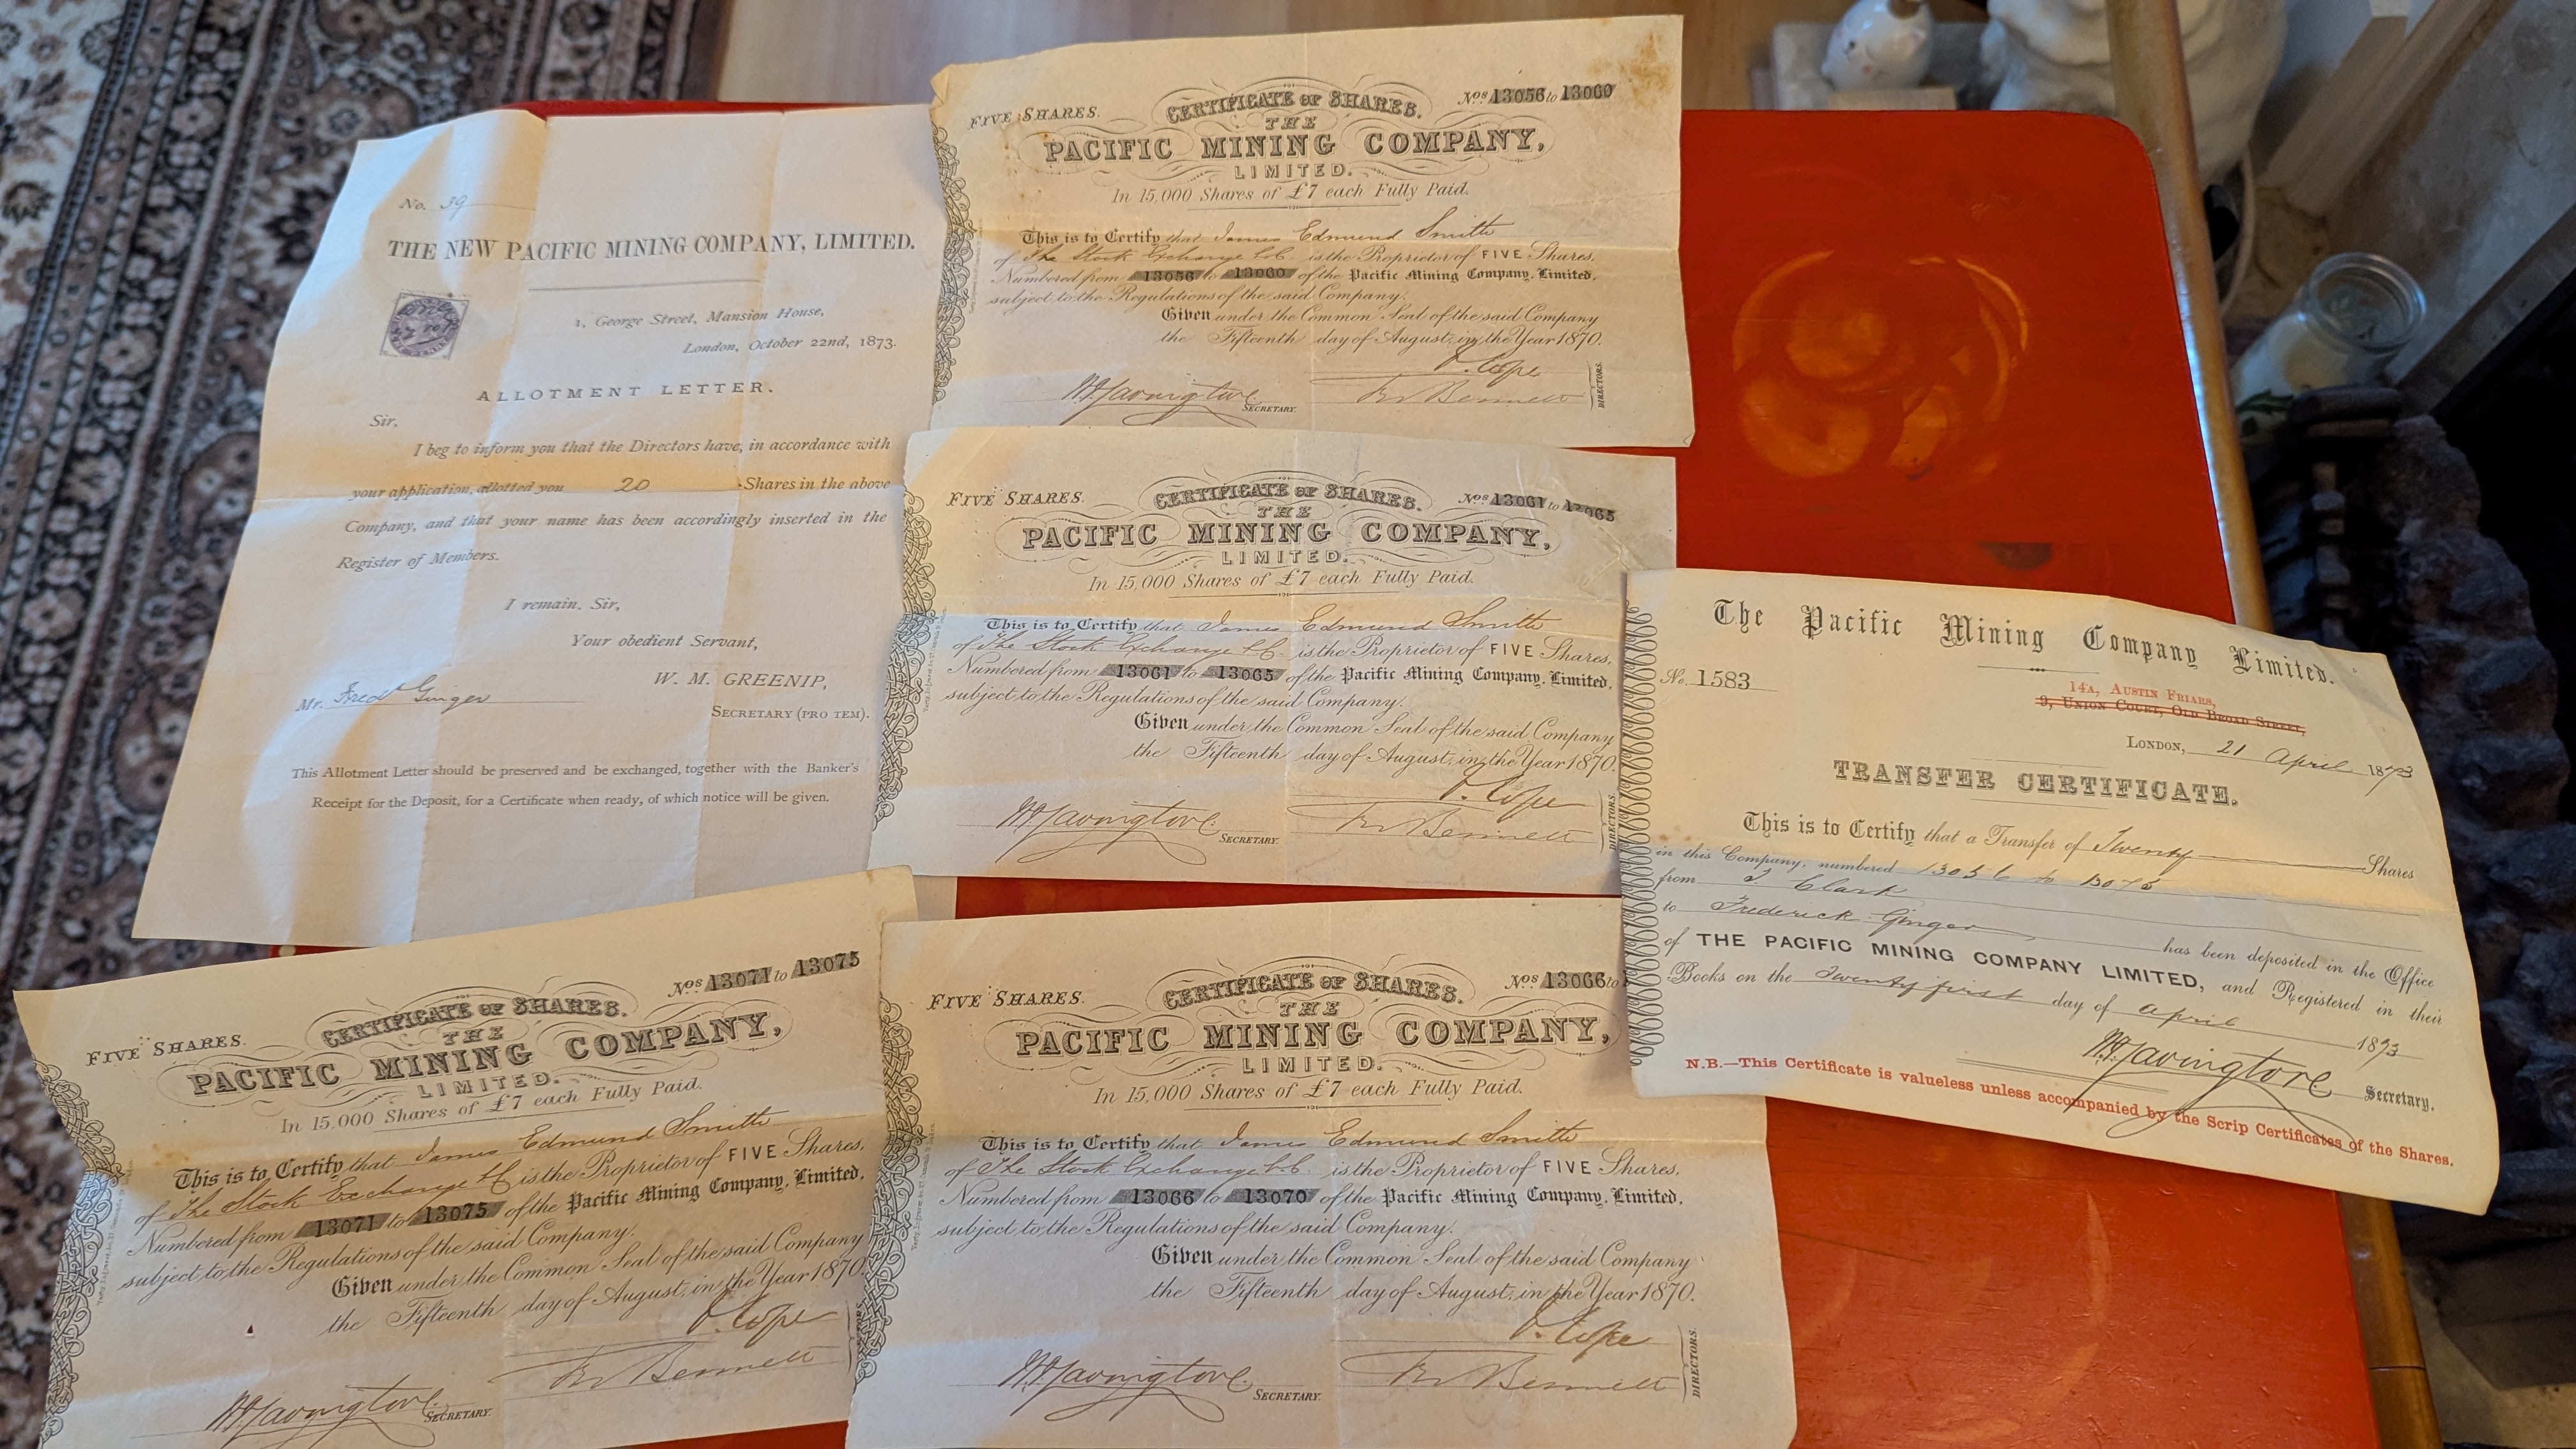 No. 39
THE NEW PACIFIC MINING COMPANY, LIMITED.
1, George Street, Mansion House,
London, October 22nd, 1873.
ALLOTMENT LETTER.
Sir,
I beg to inform you that the Directors have, in accordance with
your application, allotted you 20 Shares in the above
Company, and that your name has been accordingly inserted in the
Register of Members.
I remain, Sir,
Your obedient Servant,
W. M. GREENIP,
SECRETARY (PRO TEM).
Mr. Fredk Ginger
This Allotment Letter should be preserved and be exchanged, together with the Banker's
Receipt for the Deposit, for a Certificate when ready, of which notice will be given.
FIVE SHARES.
CERTIFICATE OF SHARES.
Nos 13056 to 13060
THE
PACIFIC MINING COMPANY,
LIMITED.
In 15,000 Shares of £7 each Fully Paid.
This is to Certify that James Edmund Smith
of The Stock Exchange is the Proprietor of FIVE Shares,
Numbered from 13056 to 13060 of the Pacific Mining Company, Limited,
subject to the Regulations of the said Company.
Given under the Common Seal of the said Company
the Fifteenth day of August, in the Year 1870.
Cope
Bennett
SECRETARY.
DIRECTORS.
FIVE SHARES.
CERTIFICATE OF SHARES.
Nos 13061 to 13065
THE
PACIFIC MINING COMPANY,
LIMITED.
In 15,000 Shares of £7 each Fully Paid.
This is to Certify that James Edmund Smith
of The Stock Exchange is the Proprietor of FIVE Shares,
Numbered from 13061 to 13065 of the Pacific Mining Company, Limited,
subject to the Regulations of the said Company.
Given under the Common Seal of the said Company
the Fifteenth day of August, in the Year 1870.
Cope
Bennett
SECRETARY.
DIRECTORS.
The Pacific Mining Company Limited.
No. 1583
14A, AUSTIN FRIARS,
9, UNION COURT, OLD BROAD STREET,
LONDON, 21 April 1873
TRANSFER CERTIFICATE.
This is to Certify that a Transfer of Twenty Shares
in this Company, numbered 13056 to 13075
from Clark
to Frederick Ginger has been deposited in the Office
of THE PACIFIC MINING COMPANY LIMITED, and Registered in their
Books on the Twenty first day of April 1873
Secretary.
N.B.—This Certificate is valueless unless accompanied by the Scrip Certificates of the Shares.
FIVE SHARES.
CERTIFICATE OF SHARES.
Nos 13071 to 13075
THE
PACIFIC MINING COMPANY,
LIMITED.
In 15,000 Shares of £7 each Fully Paid.
This is to Certify that James Edmund Smith
of The Stock Exchange is the Proprietor of FIVE Shares,
Numbered from 13071 to 13075 of the Pacific Mining Company, Limited,
subject to the Regulations of the said Company.
Given under the Common Seal of the said Company
the Fifteenth day of August, in the Year 1870.
Cope
Bennett
SECRETARY.
FIVE SHARES.
CERTIFICATE OF SHARES.
Nos 13066 to
THE
PACIFIC MINING COMPANY,
LIMITED.
In 15,000 Shares of £7 each Fully Paid.
This is to Certify that James Edmund Smith
of The Stock Exchange is the Proprietor of FIVE Shares,
Numbered from 13066 to 13070 of the Pacific Mining Company, Limited,
subject to the Regulations of the said Company.
Given under the Common Seal of the said Company
the Fifteenth day of August, in the Year 1870.
Cope
Bennett
SECRETARY.
DIRECTORS.